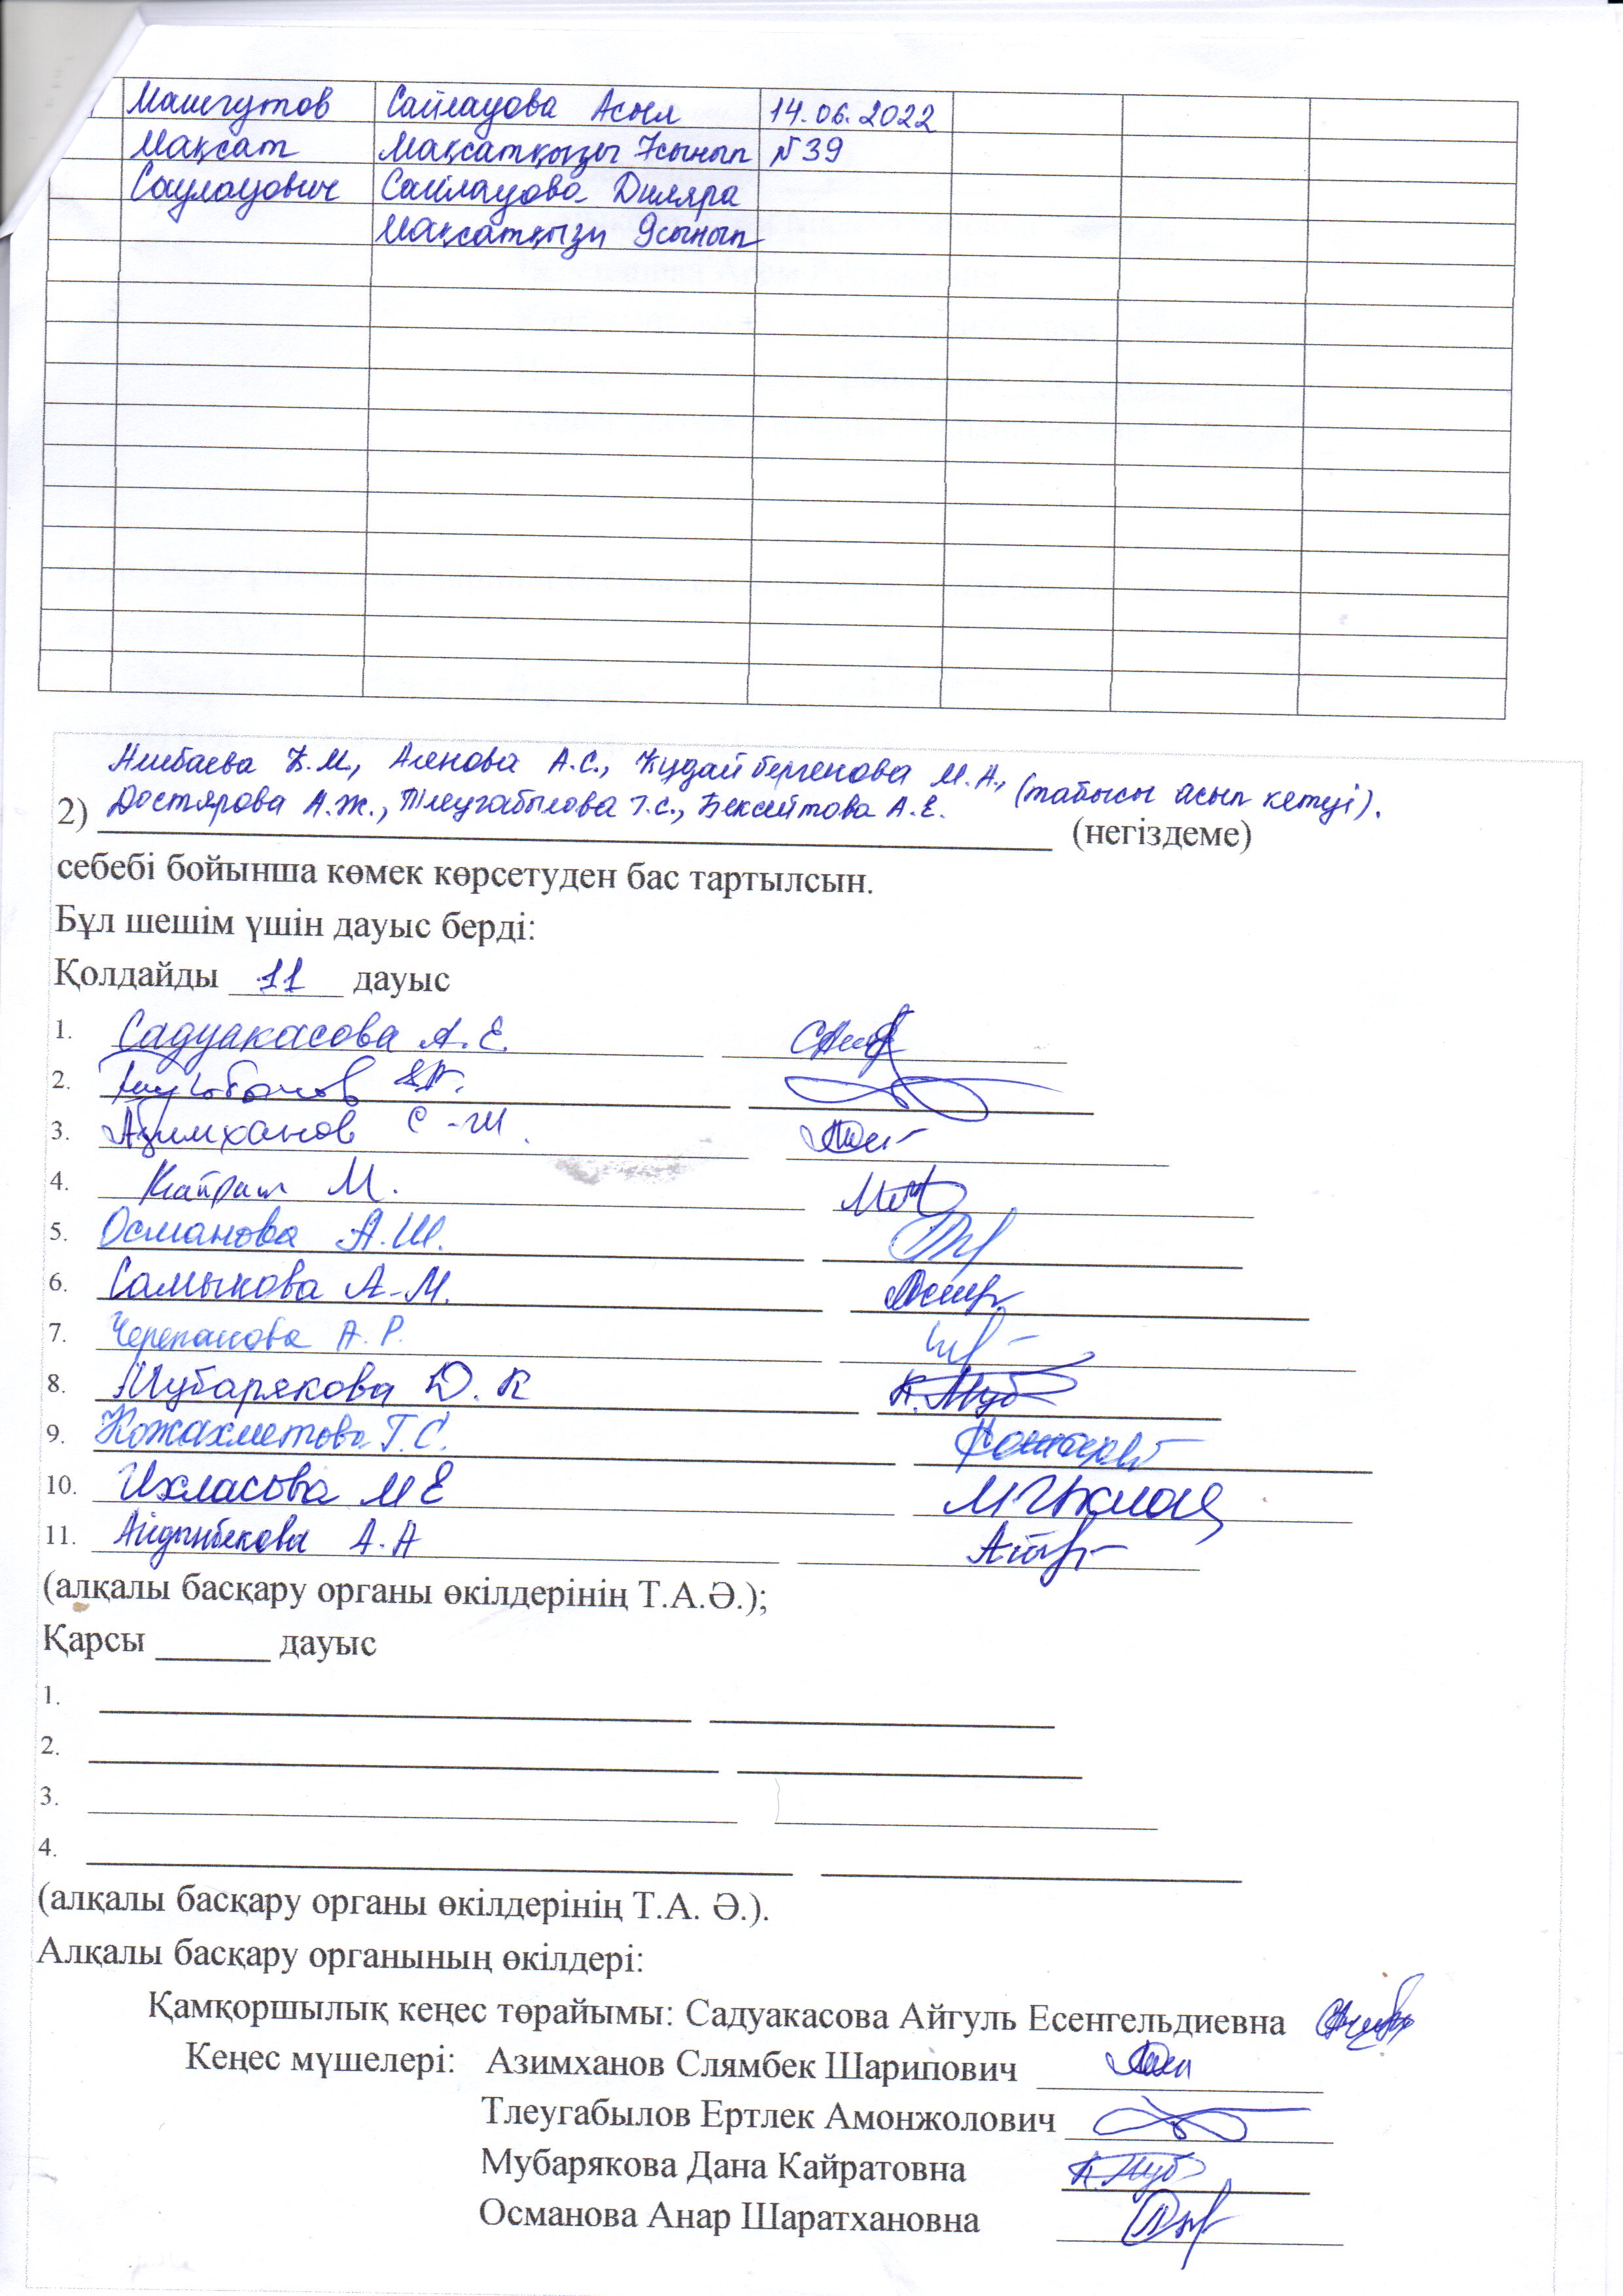 Машгутов Сайлауова Асыл 14.06.2022
Мақсат Мақсатқызы 7сынып №39
Саулауович Сайлауова Диляра
Мақсатқызы 9сынып
Ашбаева К.М., Аленова А.С., Құдайбергенова М.А., (табысы асып кетуі).
2) Достярова А.Ж., Тілеуғабылова Г.С., Бексейтова А.Е. (негіздеме)
себебі бойынша көмек көрсетуден бас тартылсын.
Бұл шешім үшін дауыс берді:
Қолдайды 11 дауыс
1. Садуакасова А.Е.
2.
3. Азимханов С.Ш.
4. М.
5. Османова А.Ш.
6. Самыкова А.М.
7. Черепанова А.Р.
8. Мубарякова Д.К
9. Кожахметова Г.С.
10. Ихласова М Е
11. Айдынбекова А.А
(алқалы басқару органы өкілдерінің Т.А.Ә.);
Қарсы ______ дауыс
1.
2.
3.
4.
(алқалы басқару органы өкілдерінің Т.А. Ә.).
Алқалы басқару органының өкілдері:
Қамқоршылық кеңес төрайымы: Садуакасова Айгуль Есенгельдиевна
Кеңес мүшелері: Азимханов Слямбек Шарипович
Тлеугабылов Ертлек Амонжолович
Мубарякова Дана Кайратовна
Османова Анар Шаратхановна